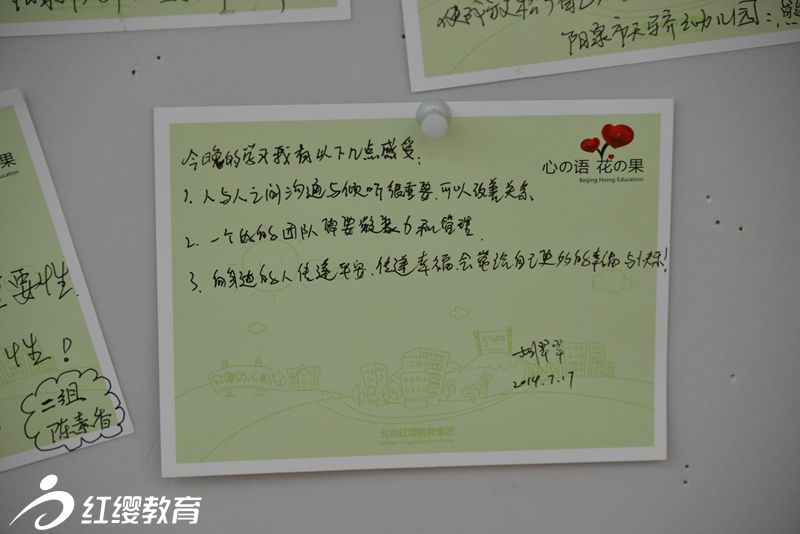 阳泉市天骄幼儿园:
心の语 花の果
Beijing Hoing Education
今晚的学习我有以下几点感受:
1. 人与人之间沟通与倾听很重要,可以改善关系
2. 一个好的团队需要凝聚力和管理
3. 向身边的人传递平安、传递幸福,会带给自己更多的幸福与快乐!
2014.7.17
北京红缨教育集团
Beijing Hoing Education Group
の果
Education
重要性
性!
二组
陈素香
红缨教育